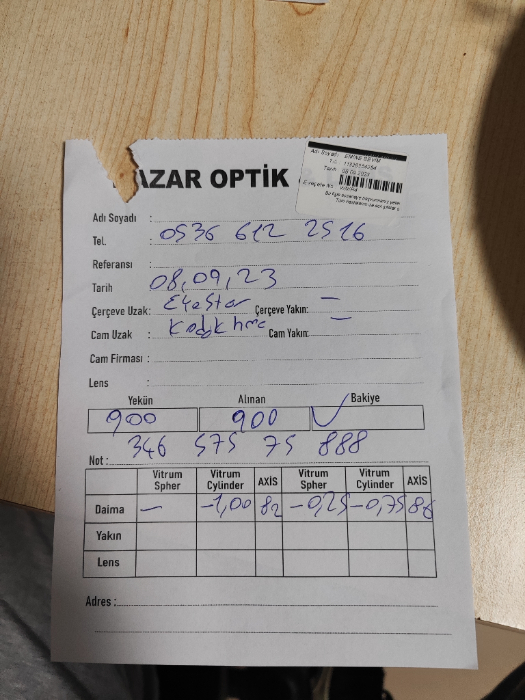 Adı Soyadı:
T.C.
Tarih:
E-reçete No:
AZAR OPTİK
Adı Soyadı :
Tel. : 0536 612 2516
Referansı :
Tarih 08,09,23
Çerçeve Uzak: Çerçeve Yakın: —
Cam Uzak : Cam Yakın: —
Cam Firması :
Lens :
Yekün Alınan Bakiye
900 900
346 575 75 888
Not :
Vitrum Spher Vitrum Cylinder AXİS Vitrum Spher Vitrum Cylinder AXİS
Daima — -1,00 82 -0,25 -0,75
Yakın
Lens
Adres :